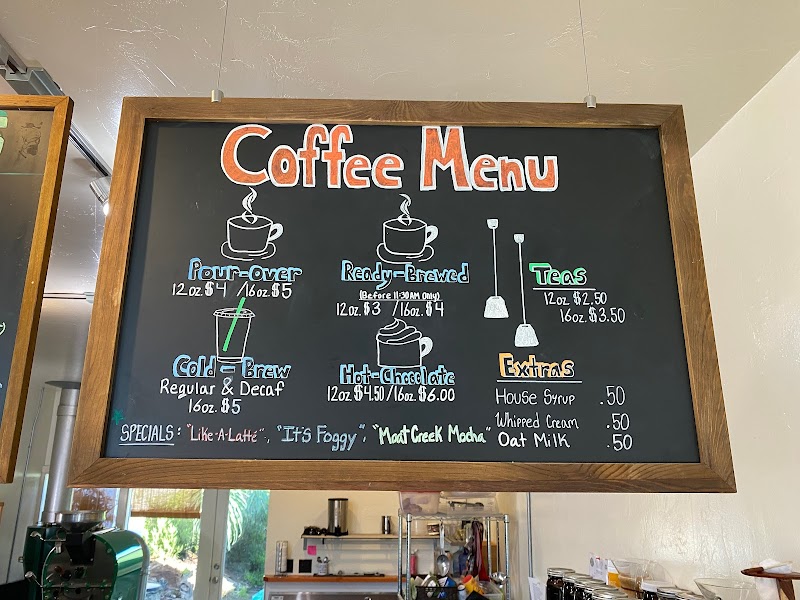 Coffee Menu
Pour-over
12oz $4 /16oz $5
Ready-Brewed
(Before 11:30AM Only)
12oz. $3 /16oz. $4
Teas
12oz $2.50
16oz. $3.50
Cold-Brew
Regular & Decaf
16oz. $5
Hot-Chocolate
12oz $4.50/16oz. $6.00
Extras
House Syrup .50
Whipped Cream .50
Oat Milk .50
SPECIALS: "Like-A-Latté", "It's Foggy", "Moat Creek Mocha"